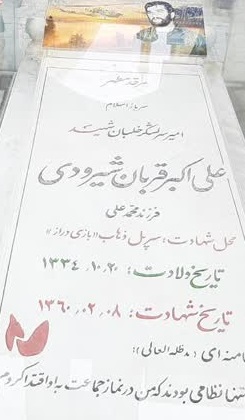 مرقد مطهر
سرباز اسلام
امیر سرلشگر خلبان شهید
علی اکبر قربان شیرودی
فرزند محمد علی
محل شهادت: سرپل ذهاب «بازی دراز»
تاریخ ولادت: ۱۳۳۴.۱۰.۲۰
تاریخ شهادت: ۱۳۶۰.۰۲.۰۸
خامنه ای (مدظله العالی):
تنها نظامی بودند که من در نماز جماعت به او اقتدا کردم